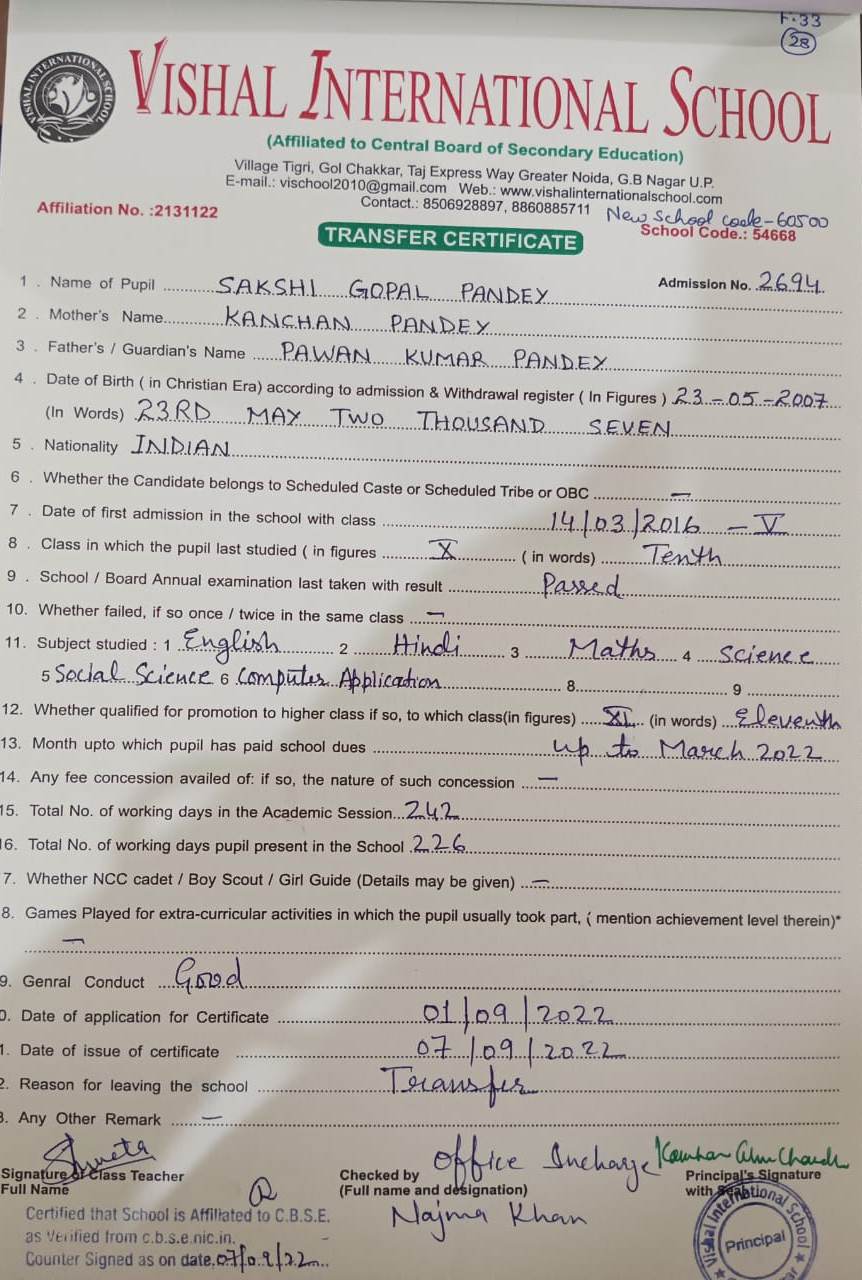 F.33
28
VISHAL INTERNATIONAL SCHOOL
VISHAL INTERNATIONAL SCHOOL
(Affiliated to Central Board of Secondary Education)
Village Tigri, Gol Chakkar, Taj Express Way Greater Noida, G.B Nagar U.P.
E-mail.: vischool2010@gmail.com Web.: www.vishalinternationalschool.com
Contact.: 8506928897, 8860885711 New School code-60500
Affiliation No. :2131122 School Code.: 54668
TRANSFER CERTIFICATE
1 . Name of Pupil SAKSHI GOPAL PANDEY Admission No. 2694
2 . Mother's Name KANCHAN PANDEY
3 . Father's / Guardian's Name PAWAN KUMAR PANDEY
4 . Date of Birth ( in Christian Era) according to admission & Withdrawal register ( In Figures ) 23-05-2007
(In Words) 23RD MAY TWO THOUSAND SEVEN
5 . Nationality INDIAN
6 . Whether the Candidate belongs to Scheduled Caste or Scheduled Tribe or OBC —
7 . Date of first admission in the school with class 14/03/2016 - V
8 . Class in which the pupil last studied ( in figures X ( in words) Tenth
9 . School / Board Annual examination last taken with result Passed
10. Whether failed, if so once / twice in the same class —
11. Subject studied : 1 English 2 Hindi 3 Maths 4 Science
5 Social Science 6 Computer Application 8 9
12. Whether qualified for promotion to higher class if so, to which class(in figures) XI (in words) Eleventh
13. Month upto which pupil has paid school dues up to March 2022
14. Any fee concession availed of: if so, the nature of such concession —
15. Total No. of working days in the Academic Session 242
16. Total No. of working days pupil present in the School 226
7. Whether NCC cadet / Boy Scout / Girl Guide (Details may be given) —
8. Games Played for extra-curricular activities in which the pupil usually took part, ( mention achievement level therein)*
—
9. Genral Conduct Good
0. Date of application for Certificate 01/09/2022
1. Date of issue of certificate 07/09/2022
2. Reason for leaving the school Transfer
3. Any Other Remark —
Shweta Office Incharge
Signature of Class Teacher Checked by Principal's Signature
Full Name (Full name and designation) with Seal
Najma Khan
Certified that School is Affiliated to C.B.S.E.
as Verified from c.b.s.e.nic.in.
Counter Signed as on date 07/09/22
Vishal International School
Principal